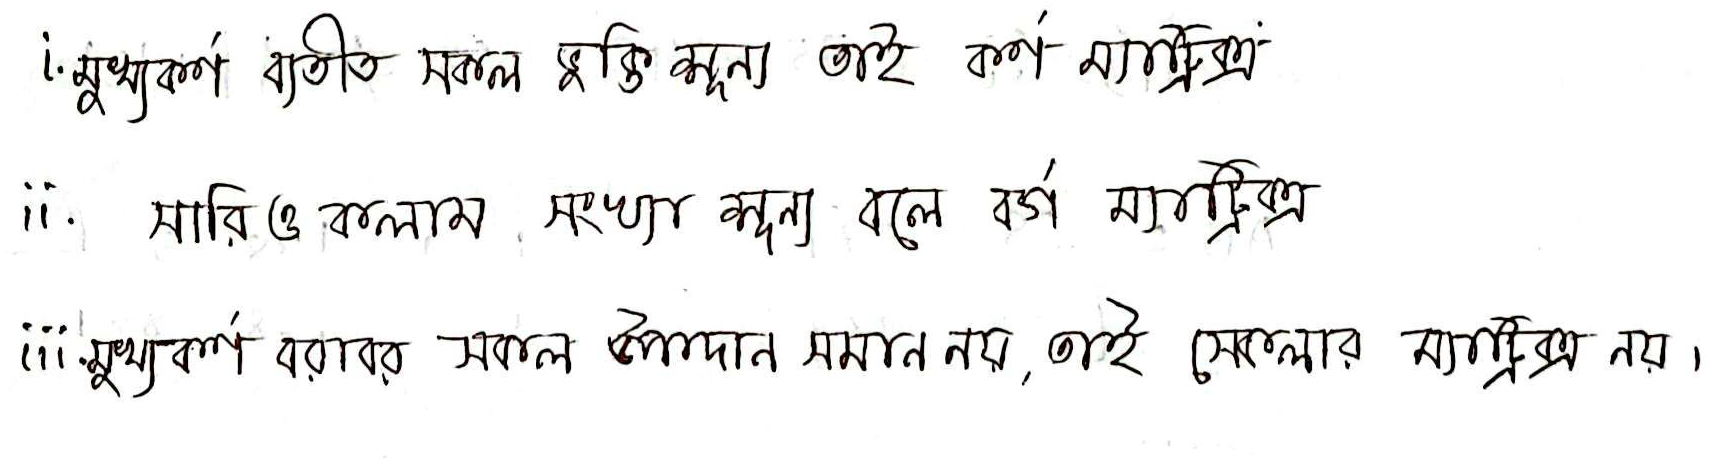 i. মুখ্যকর্ণ ব্যতীত সকল ভুক্তি শূন্য তাই কর্ণ ম্যাট্রিক্স
ii. সারি ও কলাম সংখ্যা শূন্য বলে বর্গ ম্যাট্রিক্স
iii. মুখ্যকর্ণ বরাবর সকল উপাদান সমান নয়, তাই স্কেলার ম্যাট্রিক্স নয়।